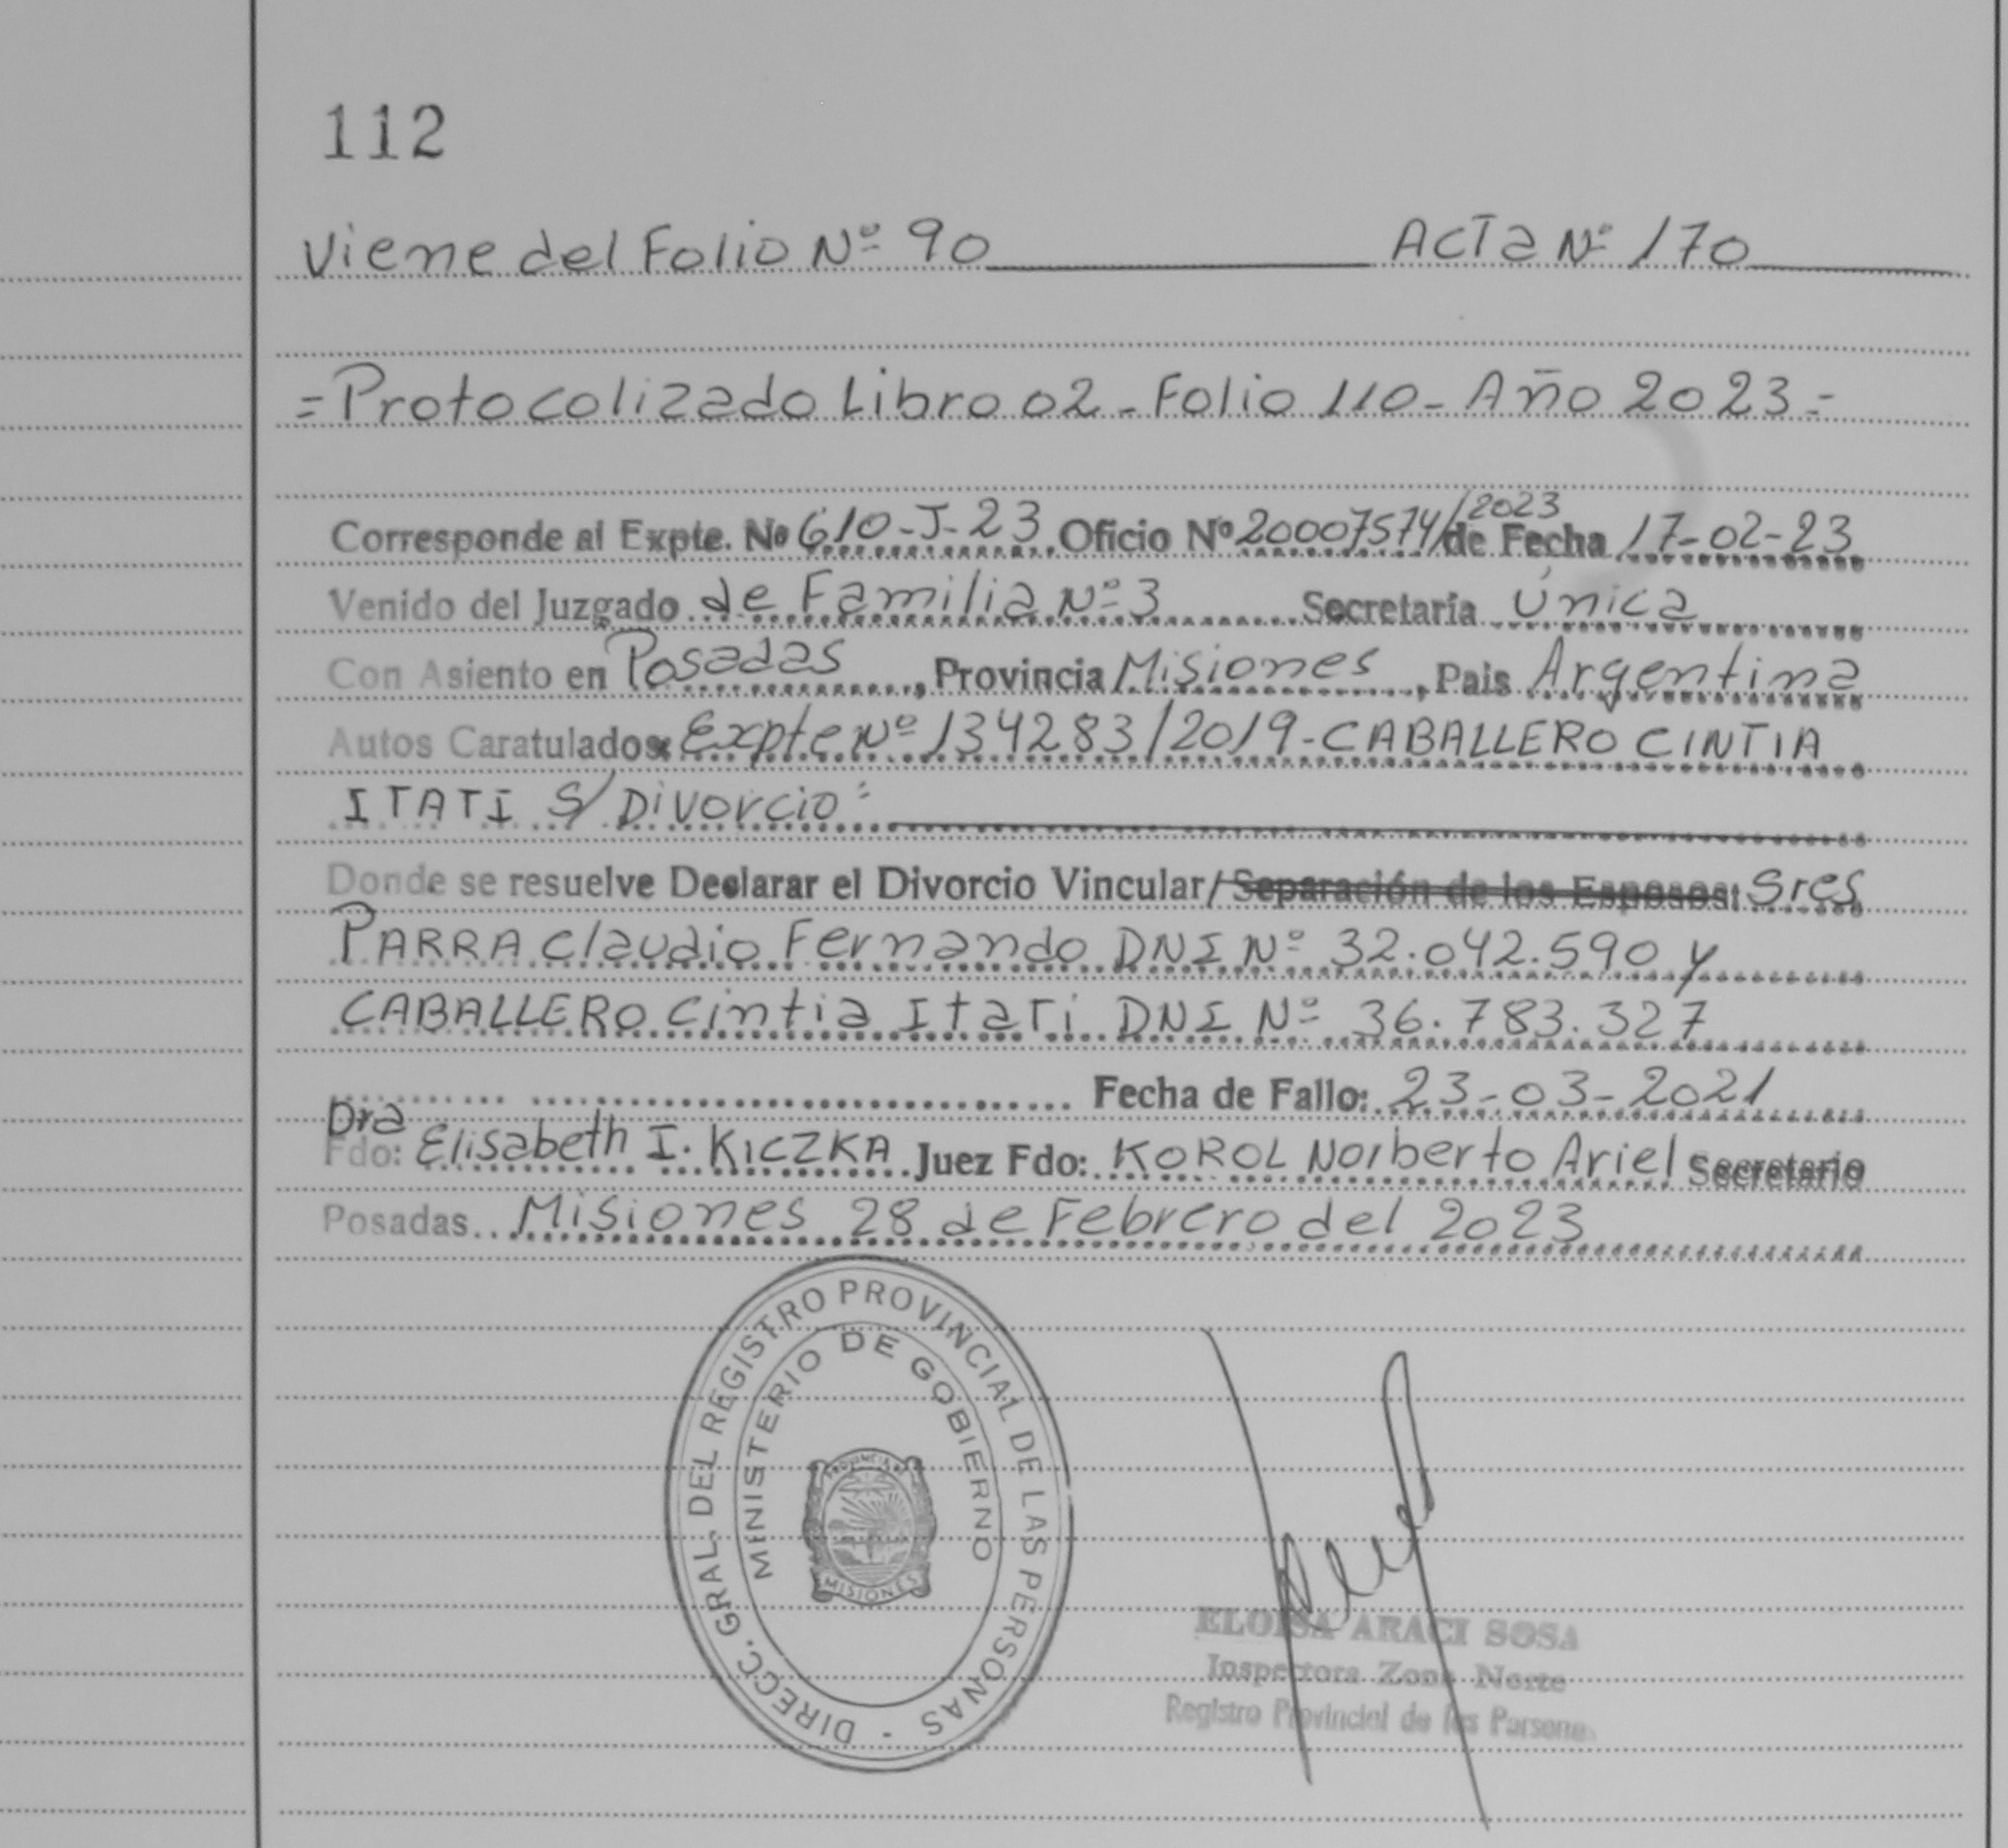 112
Viene del Folio Nº 90 ACTA Nº 170
=Protocolizado Libro 02-Folio 110-Año 2023=
Corresponde al Expte. Nº 610-J-23 Oficio Nº 20007574/2023 de Fecha 17-02-23
Venido del Juzgado de Familia Nº 3 Secretaría Única
Con Asiento en Posadas, Provincia Misiones, Pais Argentina
Autos Caratulados: Expte Nº 134283/2019-CABALLERO CINTIA
ITATI S/ Divorcio=
Donde se resuelve Declarar el Divorcio Vincular/ Separación de los Esposos: Sres
PARRA Claudio Fernando DNI Nº 32.042.590 y
CABALLERO Cintia Itati DNI Nº 36.783.327
Fecha de Fallo: 23-03-2021
Dra
Fdo: Elisabeth I. KICZKA Juez Fdo: KOROL Norberto Ariel Secretario
Posadas Misiones 28 de Febrero del 2023
DIRECC. GRAL. DEL REGISTRO PROVINCIAL DE LAS PERSONAS -
MINISTERIO DE GOBIERNO
MISIONES
ELOISA ARACI SOSA
Inspectora Zona Norte
Registro Provincial de las Personas